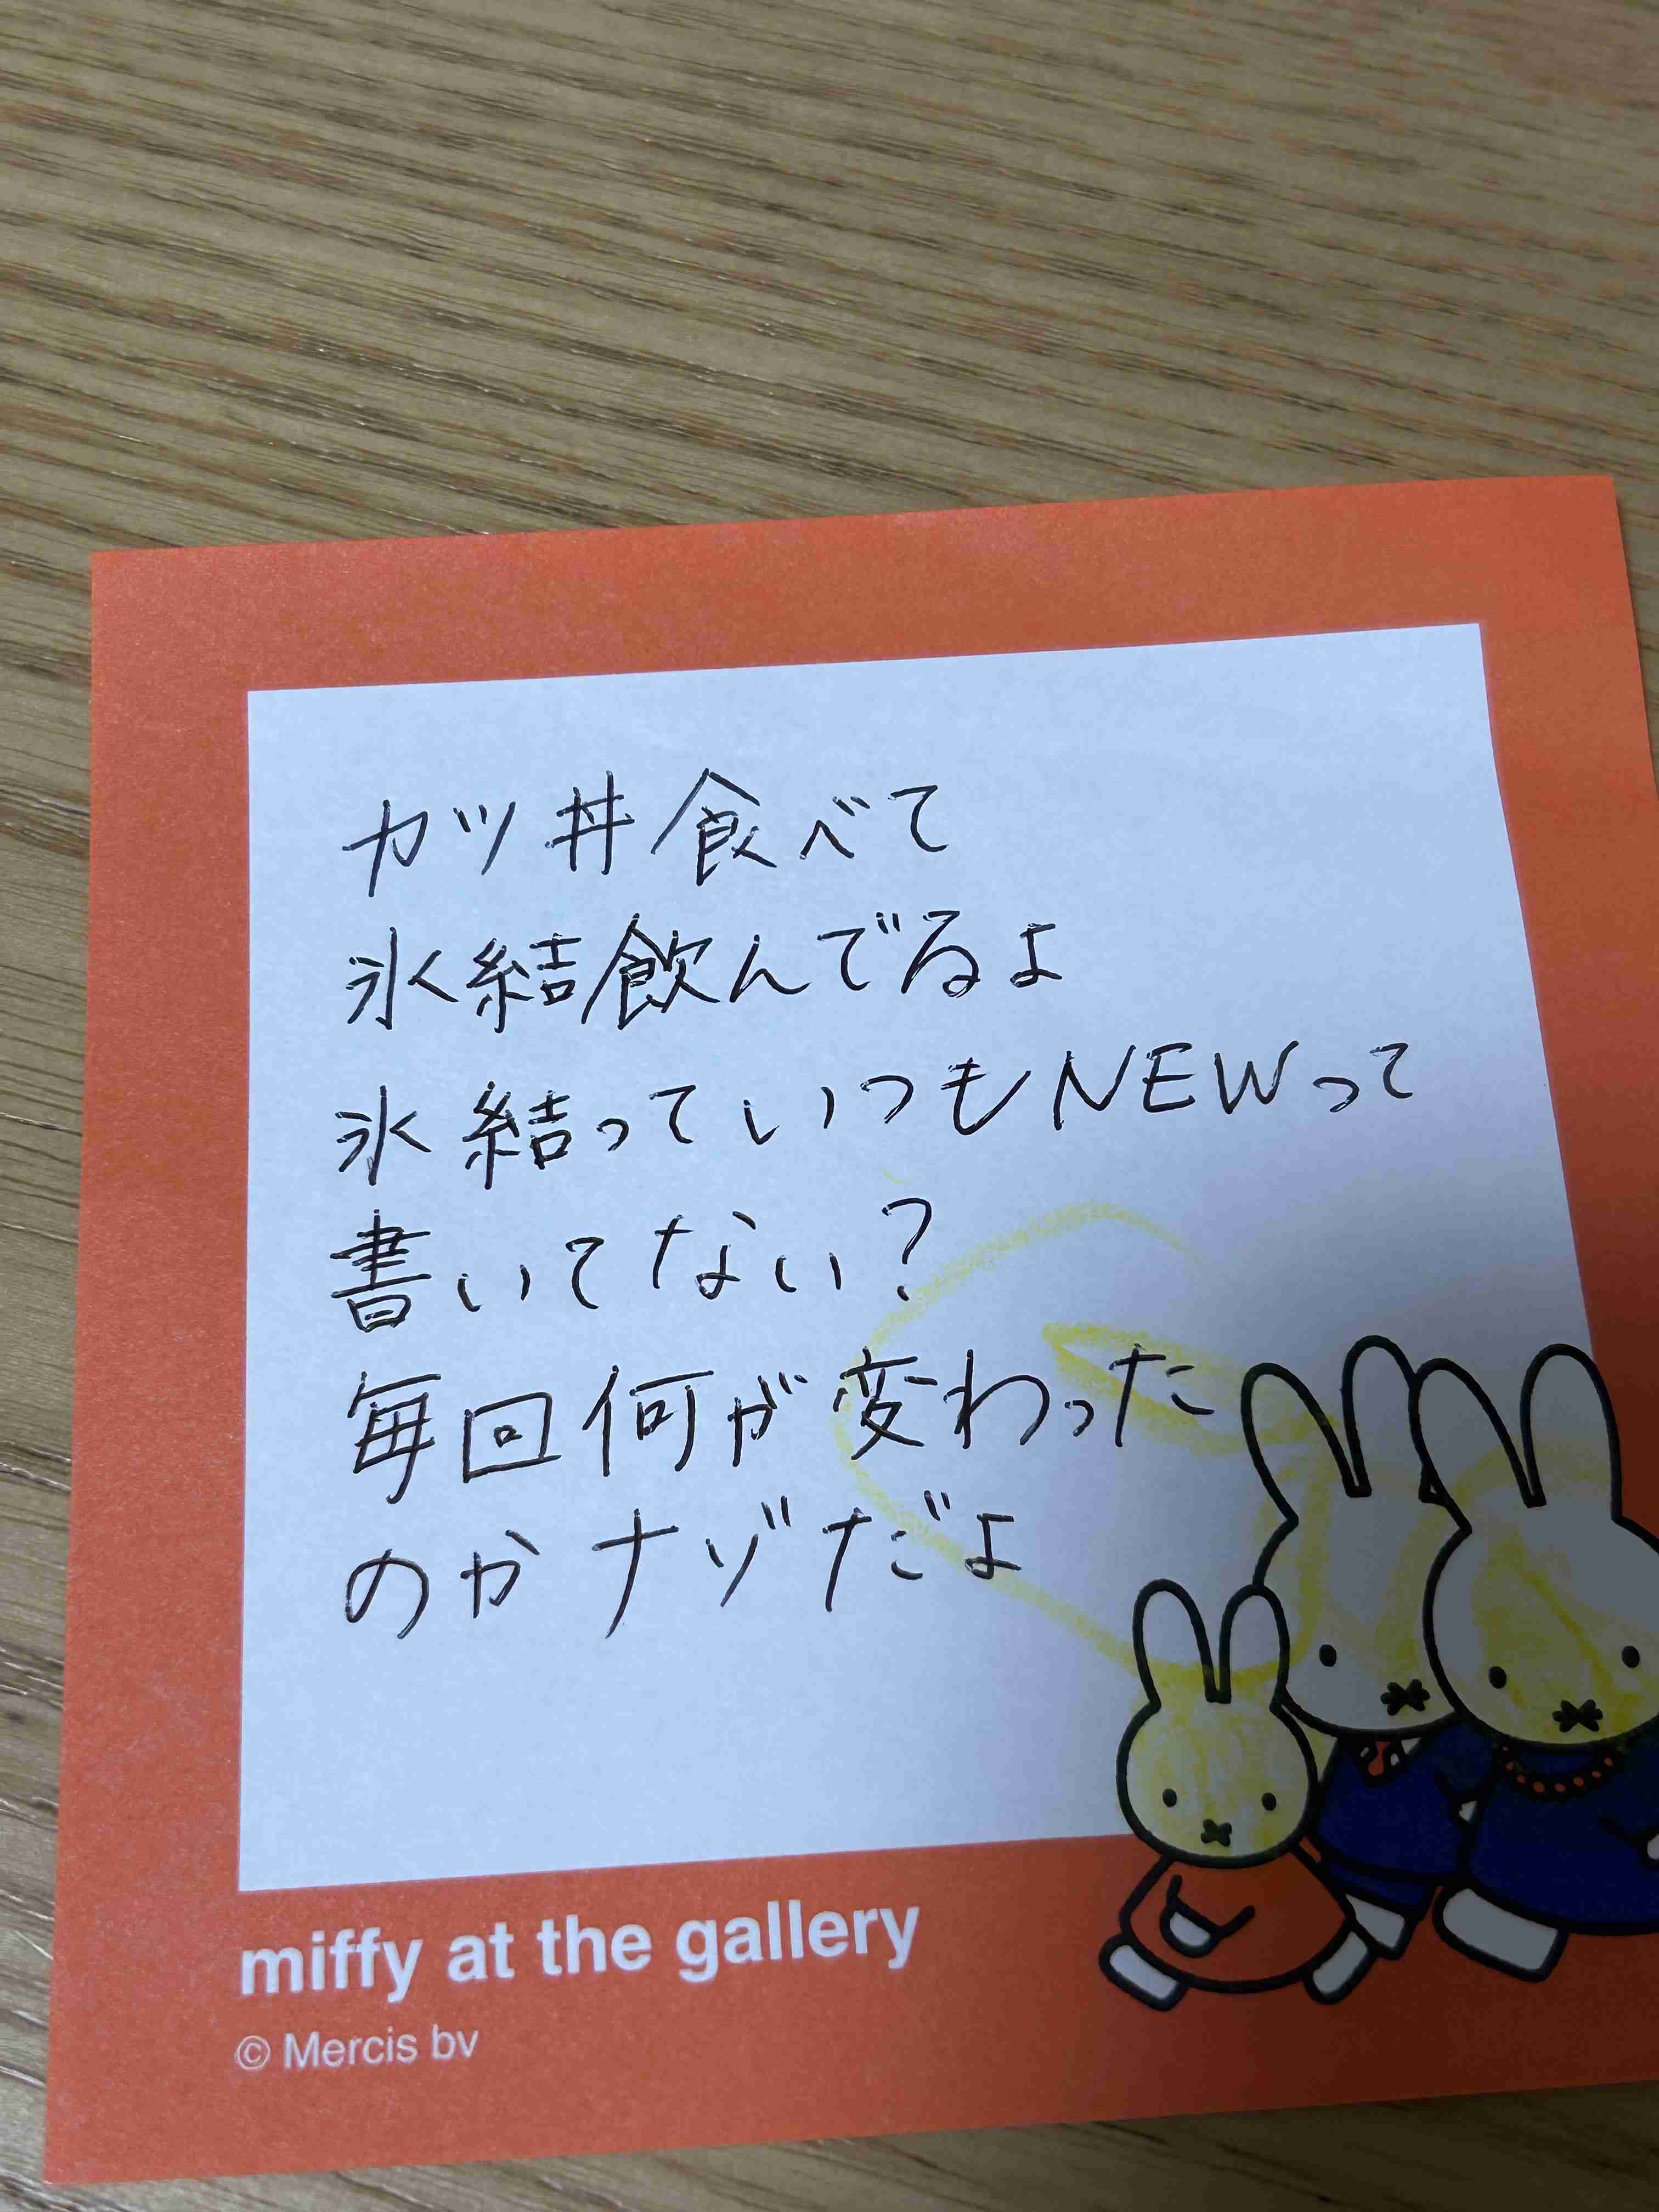 カツ丼食べて
氷結飲んでるよ
氷結っていつもNEWって
書いてない?
毎回何が変わった
のかナゾだよ
miffy at the gallery
© Mercis bv